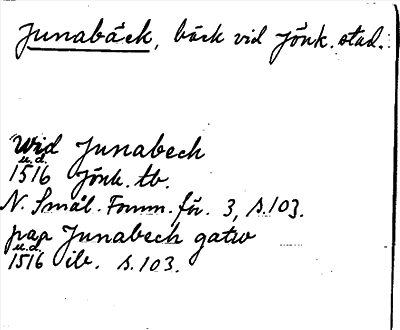 Junabäck, bäck vid Jönk. stad.
Wid Junabech
u.d.
1516 Jönk. tb.
N. Smål. Fornm. för. 3, s. 103.
paa Junabech gatw
u.d.
1516 ib. s. 103.